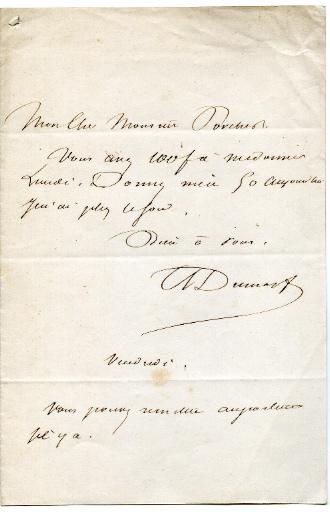 Mon cher Monsieur Porcher.
Vous avez 100f à me donner
Lundi. Donnez m'en 50 aujourd'hui
Je n'ai plus le sou.
Bien à vous.
A Dumas
Vendredi.
Vous pouvez remettre au porteur